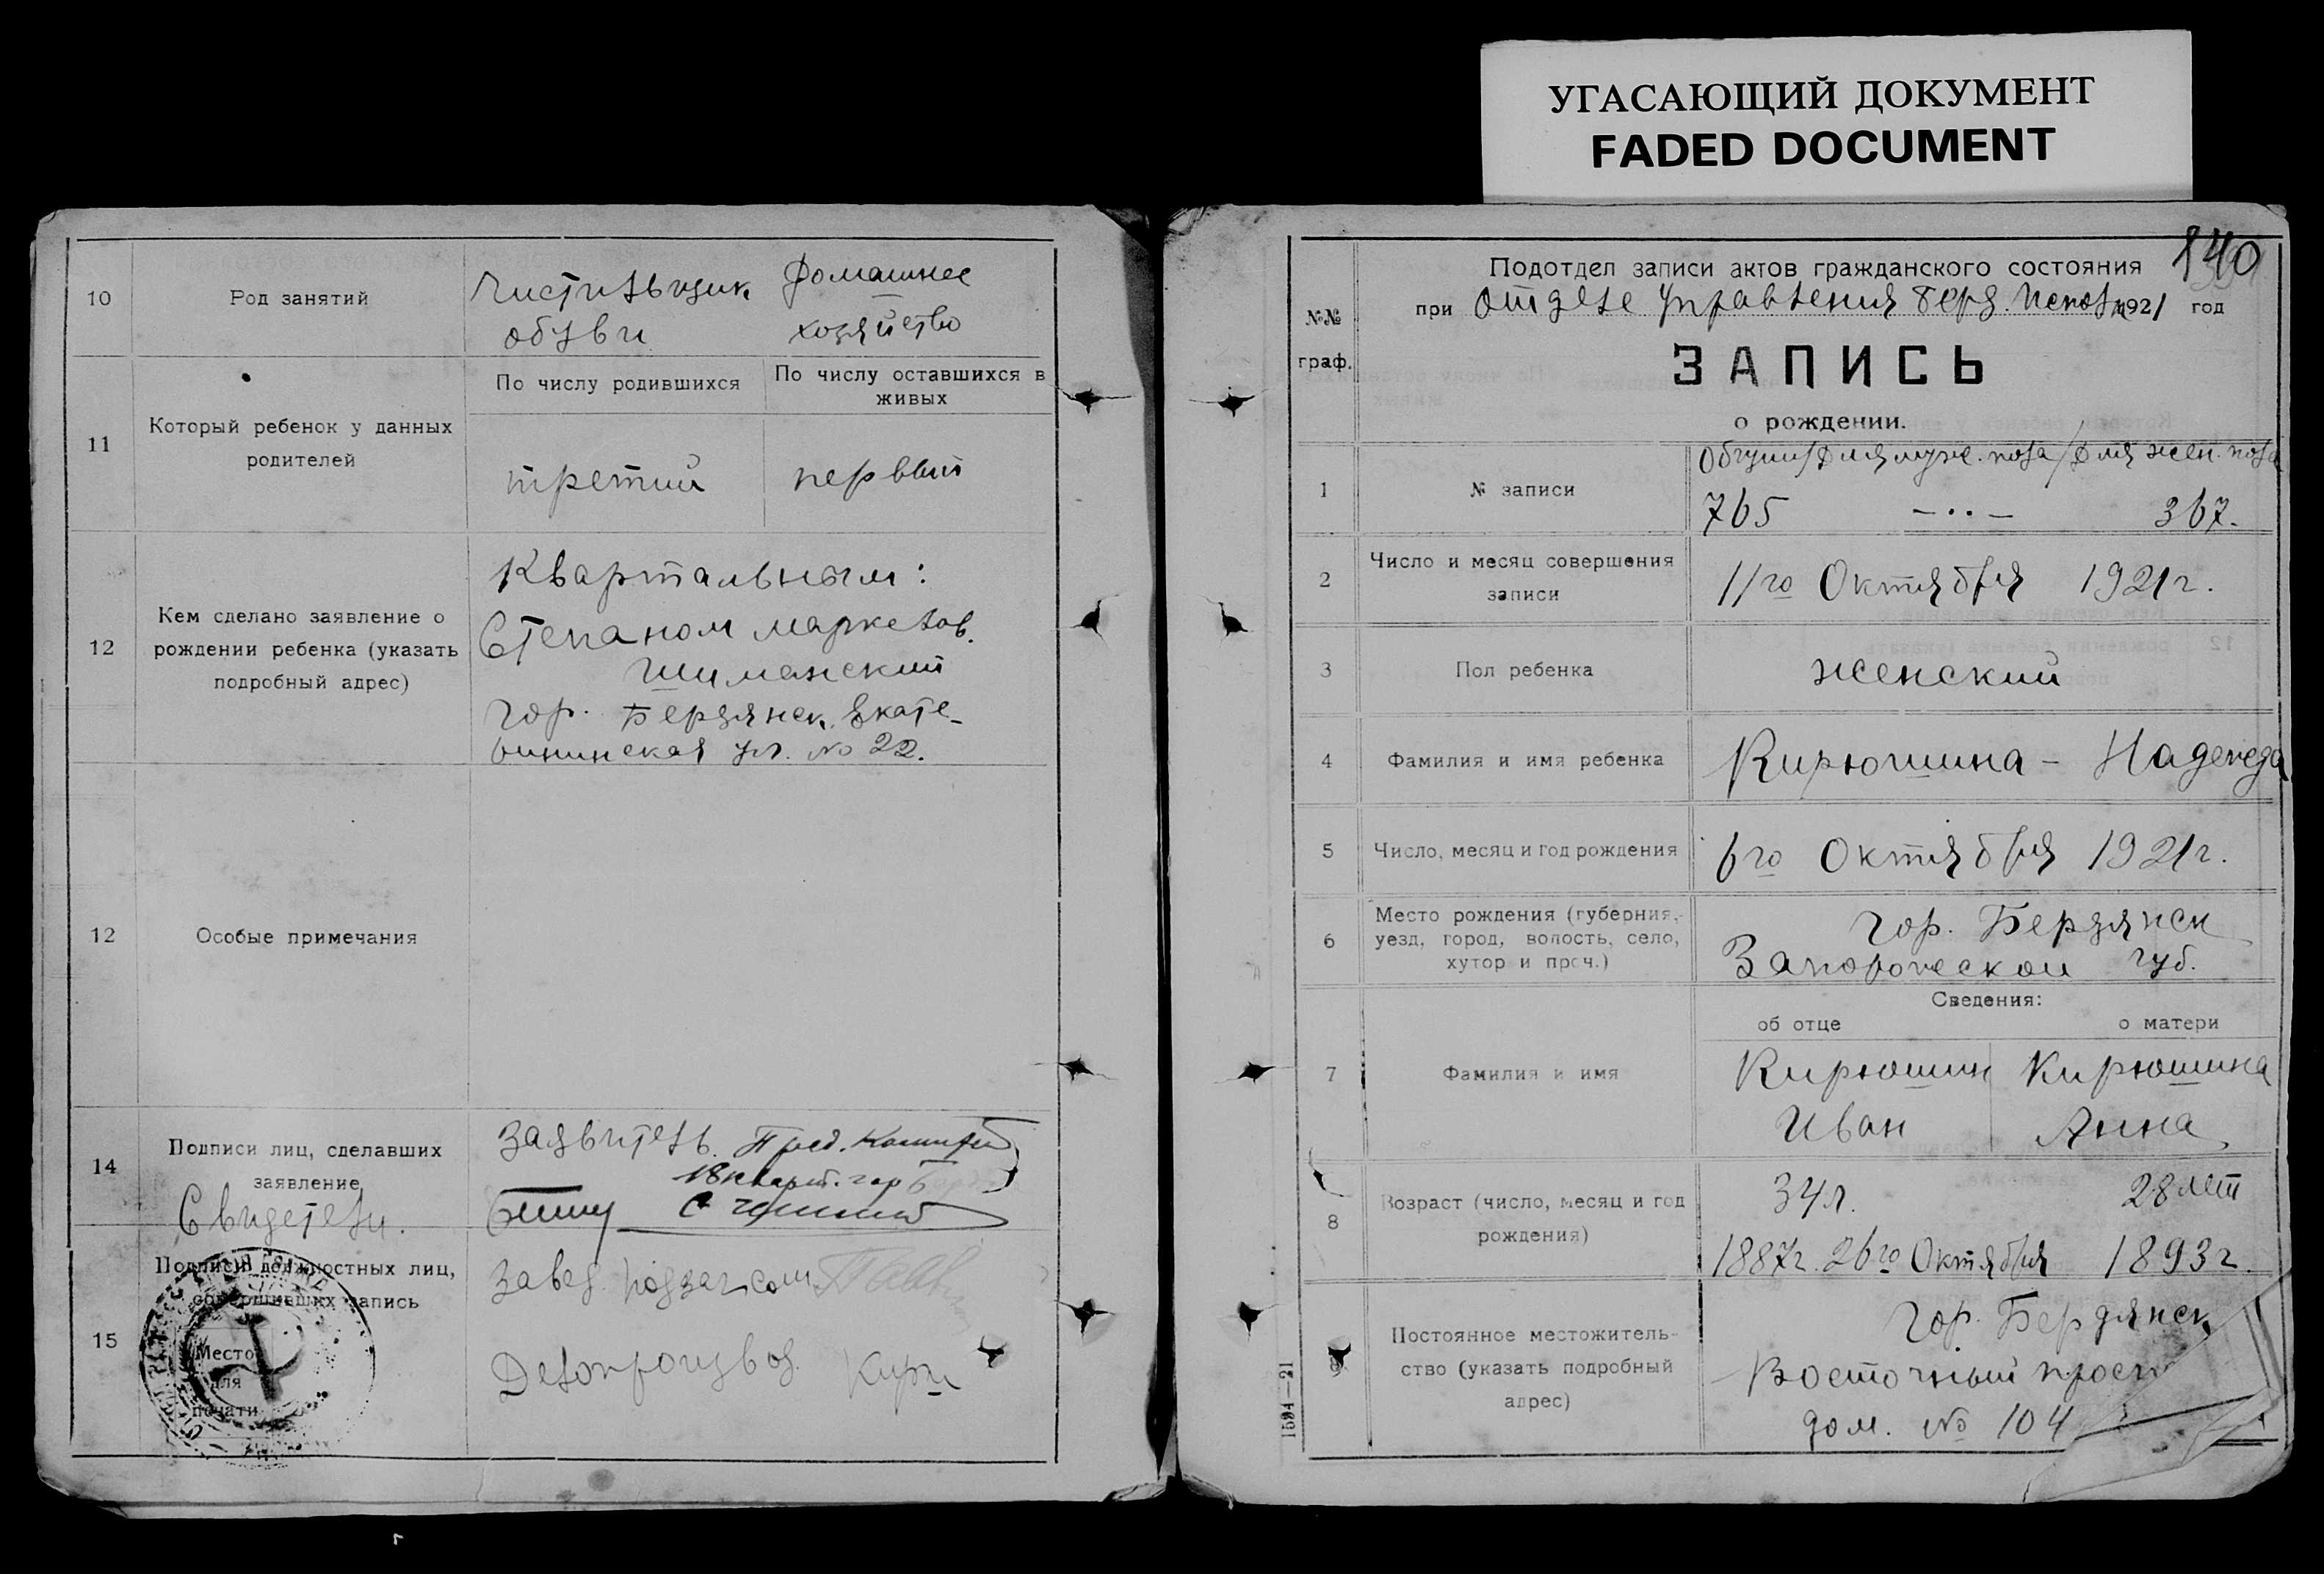 УГАСАЮЩИЙ ДОКУМЕНТ
FADED DOCUMENT
10
Род занятий
Чистильщик
обуви
Домашнее
хозяйство
11
Который ребенок у данных
родителей
По числу родившихся
По числу оставшихся в
живых
третий
первый
12
Кем сделано заявление о
рождении ребенка (указать
подробный адрес)
Квартальным:
Степаном Маркелов.
Шиманский
гор. Бердянск, Екате-
рининская ул. No 22.
12
Особые примечания
14
Подписи лиц, сделавших
заявление
Свидетели.
Заявитель. Пред.
18 кварт. гор
15
Подписи должностных лиц,
совершивших запись
Место
для
печати
Завед.
Делопроизвод.
140
№№
граф.
Подотдел записи актов гражданского состояния
при Отделе Управления Берд. Исполк 1921 год
ЗАПИСЬ
о рождении.
1
№ записи
Общий/Для муж. пола/Для жен. пола
765 —··— 367.
2
Число и месяц совершения
записи
11го Октября 1921г.
3
Пол ребенка
женский
4
Фамилия и имя ребенка
Кирюшина - Надежда
5
Число, месяц и год рождения
6го Октября 1921г.
6
Место рождения (губерния,
уезд, город, волость, село,
хутор и проч.)
гор. Бердянск
Запорожской губ.
Сведения:
об отце
о матери
7
Фамилия и имя
Кирюшин
Иван
Кирюшина
Анна
8
Возраст (число, месяц и год
рождения)
34 л.
28 лет
1887г. 26го Октября
1893г.
9
Постоянное местожитель-
ство (указать подробный
адрес)
гор. Бердянск
Восточный просп
дом. No 104
1594—21